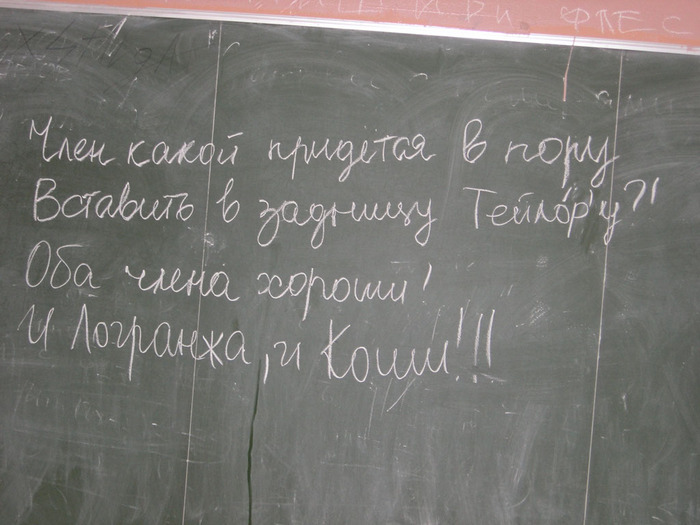 ФЛЕС
Член какой придётся в пору
Вставить в задницу Тейлору?!
Оба члена хороши!
И Логранжа, и Коши!!!